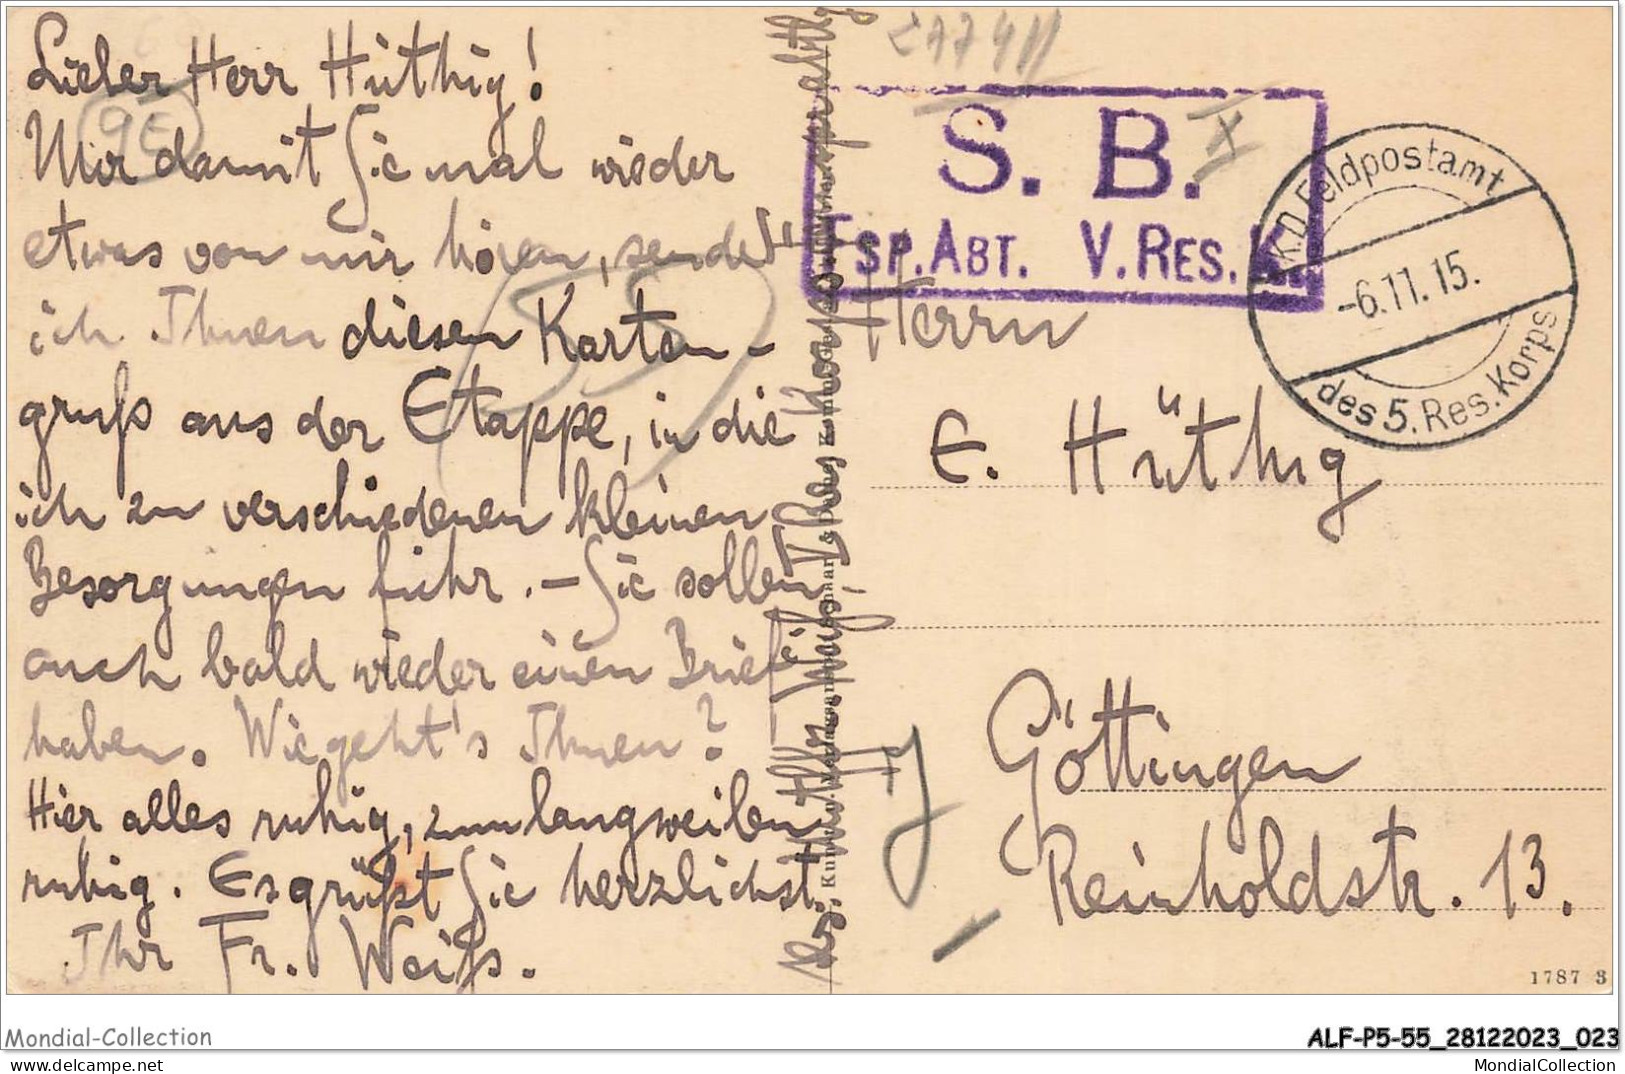 Lieber Herr Hüthig!
Nur damit Sie mal wieder
etwas von mir hören, sende
ich Ihnen diesen Karten-
gruß aus der Etappe, in die
ich zu verschiedenen kleinen
Besorgungen fuhr. - Sie sollen
auch bald wieder einen Brief
haben. Wie geht's Ihnen?
Hier alles ruhig, zum langweilen
ruhig. Es grüßt Sie herzlichst
Ihr Fr. Weiß.
95
55
27741
S. B.
Fsp. Abt. V. Res. K.
K.D. Feldpostamt
-6.11.15.
des 5. Res. Korps
Herrn
E. Hüthig
Göttingen
Reinholdstr. 13.
1787 3
Mondial-Collection
ALF-P5-55_28122023_023
MondialCollection